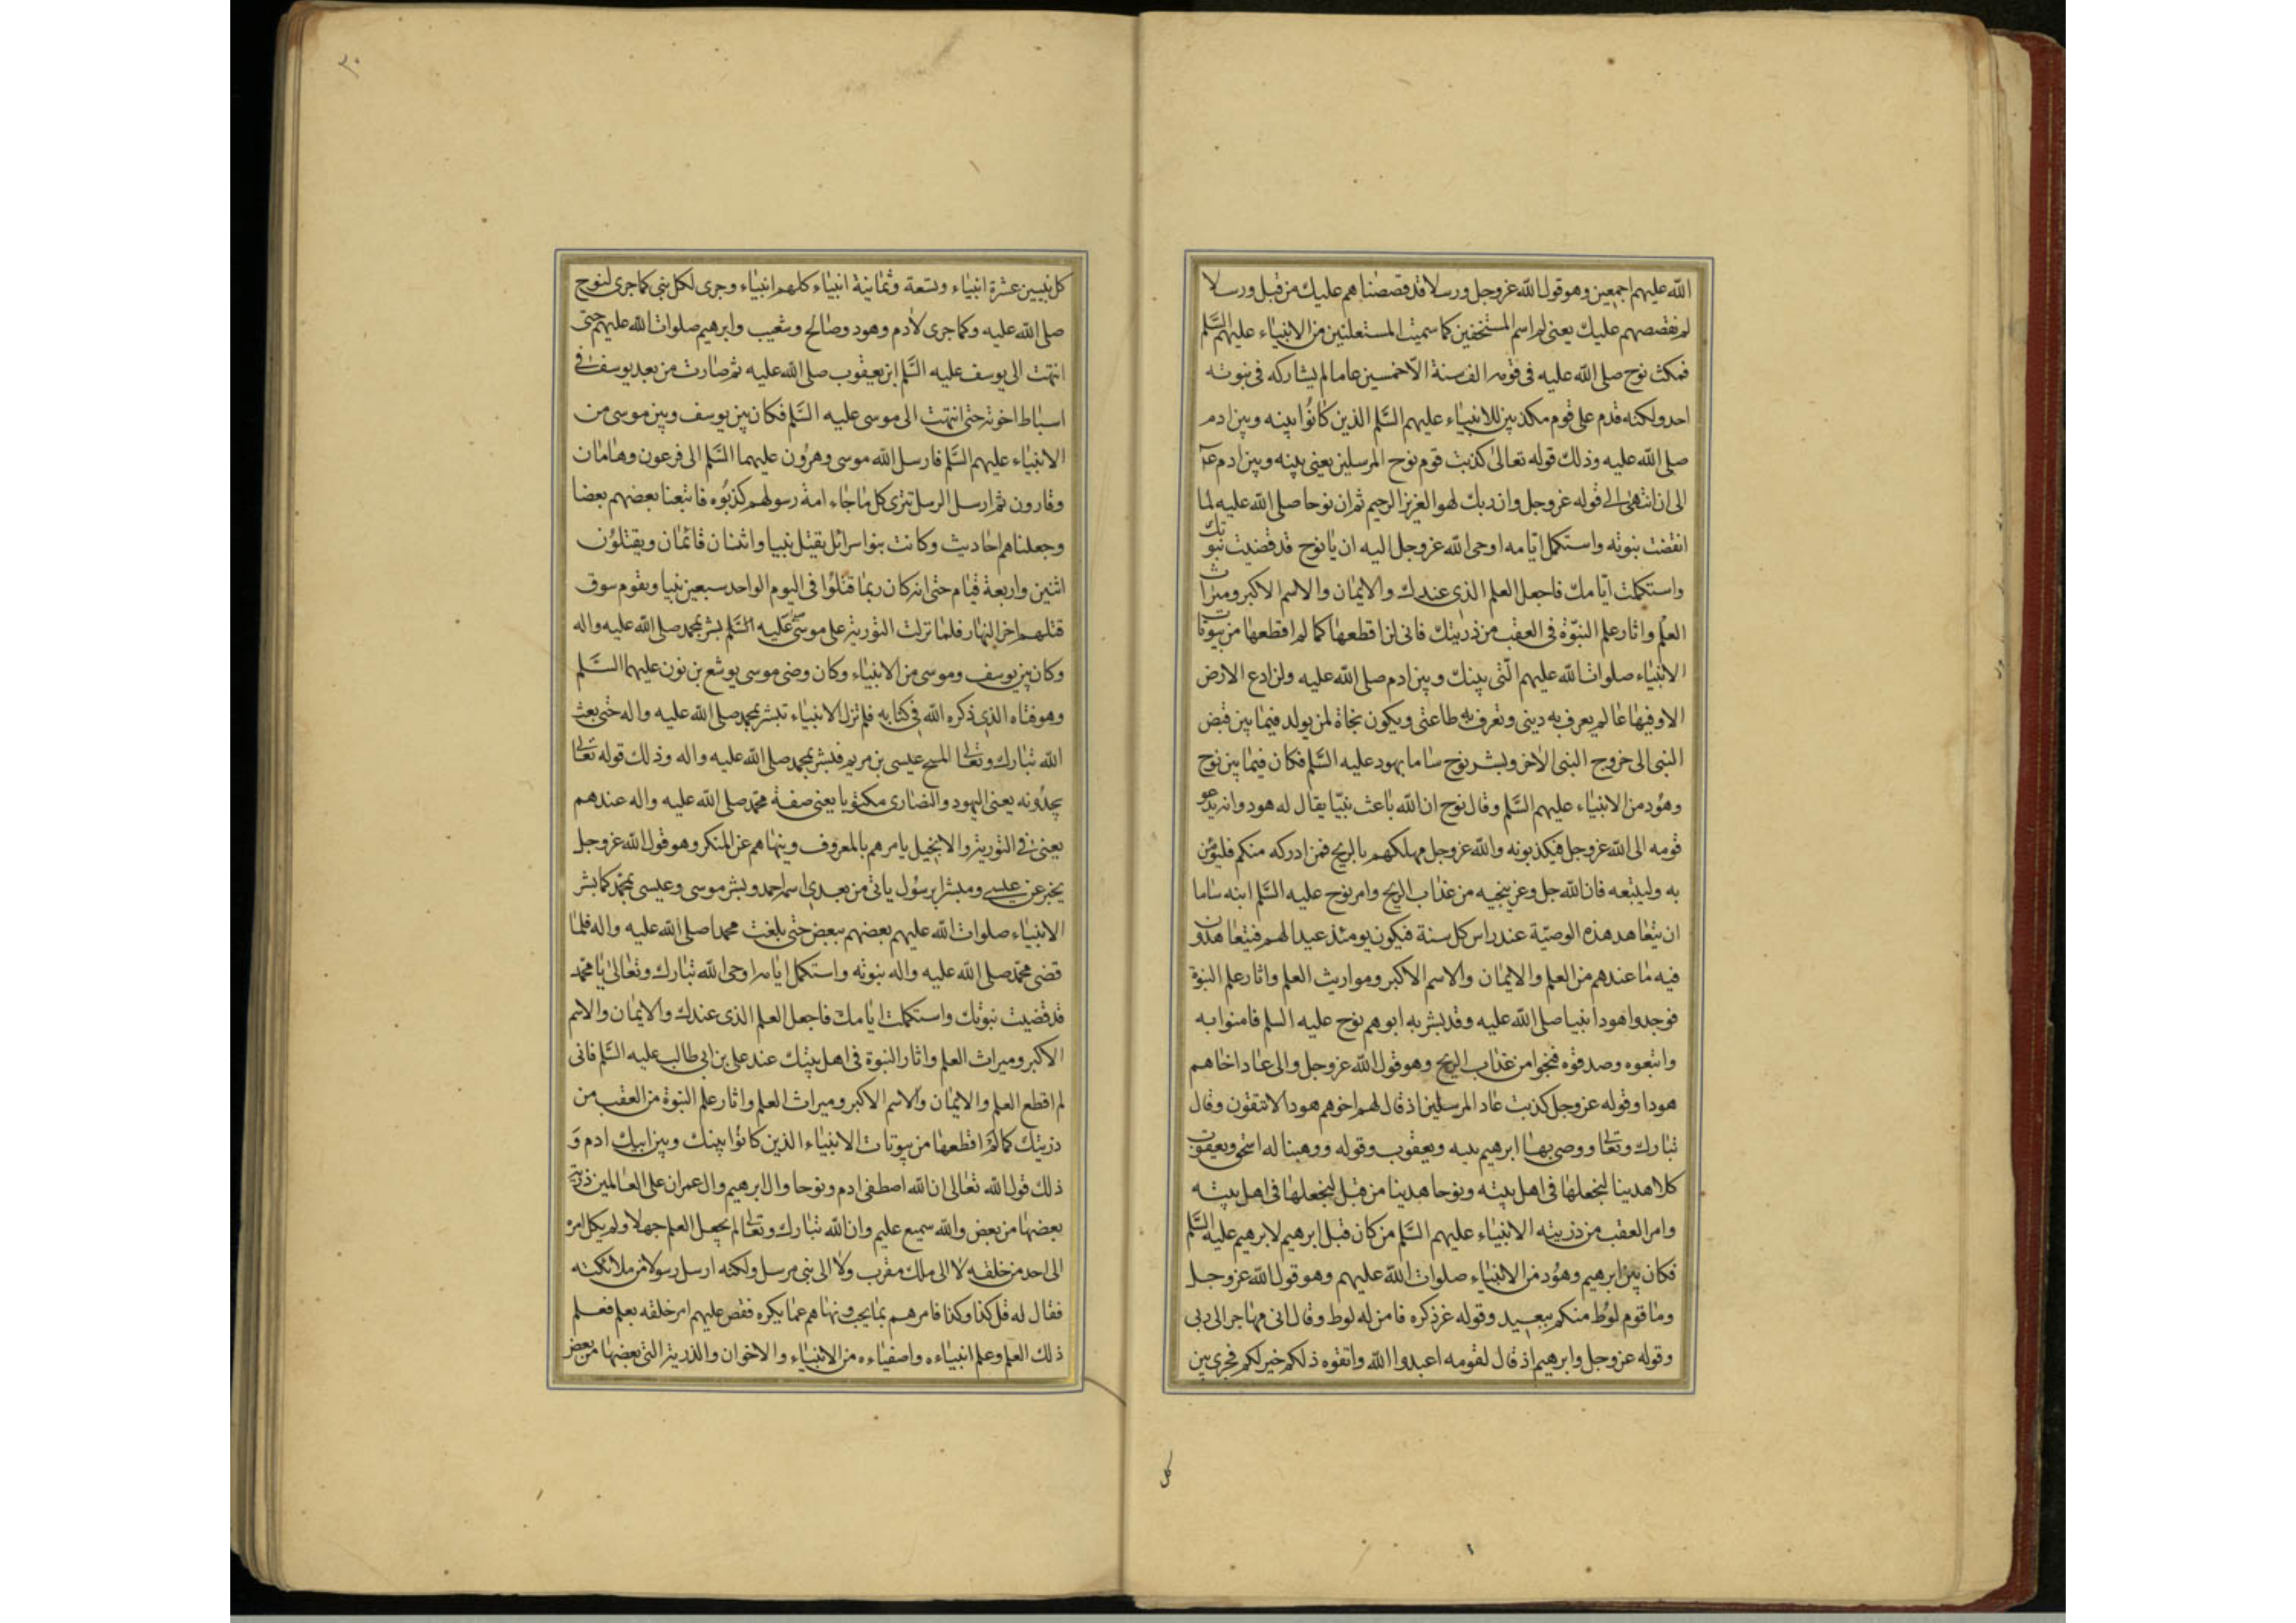 الله عليهم اجمعين وهو قول الله عز وجل ورسلا قد قصصناهم عليك من قبل ورسلا
لم نقصصهم عليك يعنى لم اسم المستخفين كما سميت المستعلنين من الانبياء عليهم السلم
فمكث نوح صلى الله عليه فى قومه الف سنة الا خمسين عاما لم يشاركه فى نبوته
احد ولكنه قدم على قوم مكذبين للانبياء عليهم السلم الذين كانوا بينه وبين ادم
صلى الله عليه وذلك قوله تعالى كذبت قوم نوح المرسلين يعنى بينه وبين ادم
الى ان انتهى الى قوله عز وجل وان ربك لهو العزيز الرحيم ثم ان نوحا صلى الله عليه لما
انقضت نبوته واستكمل ايامه اوحى الله عز وجل اليه ان يا نوح قد قضيت نبوتك
واستكملت ايامك فاجعل العلم الذى عندك والايمان والاسم الاكبر وميراث
العلم واثار علم النبوة فى العقب من ذريتك فانى لن اقطعها كما لم اقطعها من بيوتات
الانبياء صلوات الله عليهم التى بينك وبين ادم صلى الله عليه ولن ادع الارض
الا وفيها عالم يعرف به دينى وتعرف به طاعتى ويكون نجاة لمن يولد فيما بين قبض
النبى الى خروج النبى الاخر وبشر نوح ساما بهود عليه السلم فكان فيما بين نوح
وهود من الانبياء عليهم السلم وقال نوح ان الله باعث نبيا يقال له هود وانه يدعو
قومه الى الله عز وجل فيكذبونه والله عز وجل مهلكهم بالريح فمن ادركه منكم فليؤمن
به وليتبعه فان الله جل وعز ينجيه من عذاب الريح وامر نوح عليه السلم ابنه ساما
ان يتعاهد هذه الوصية عند راس كل سنة فيكون يومئذ عيدا لهم فيتعاهدون
فيه ما عندهم من العلم والايمان والاسم الاكبر ومواريث العلم واثار علم النبوة
فوجدوا هودا نبيا صلى الله عليه وقد بشر به ابوهم نوح عليه السلم فامنوا به
واتبعوه وصدقوه فنجوا من عذاب الريح وهو قول الله عز وجل والى عاد اخاهم
هودا وقوله عز وجل كذبت عاد المرسلين اذ قال لهم اخوهم هود الا تتقون وقال
تبارك وتعالى ووصى بها ابرهيم بنيه ويعقوب وقوله ووهبنا له اسحق ويعقوب
كلا هدينا لنجعلها فى اهل بيته ونوحا هدينا من قبل لنجعلها فى اهل بيته
وامر العقب من ذريته الانبياء عليهم السلم من كان قبل ابرهيم لابرهيم عليه السلم
فكان بين ابرهيم وهود من الانبياء صلوات الله عليهم وهو قول الله عز وجل
وما قوم لوط منكم ببعيد وقوله عز ذكره فامن له لوط وقال انى مهاجر الى ربى
وقوله عز وجل وابرهيم اذ قال لقومه اعبدوا الله واتقوه ذلكم خير لكم فجرى بين
كل
٣٠
كل نبيين عشرة انبياء وتسعة وثمانية انبياء كلهم انبياء وجرى لكل نبى كما جرى لنوح
صلى الله عليه وكما جرى لادم وهود وصالح وشعيب وابرهيم صلوات الله عليهم حتى
انتهت الى يوسف عليه السلم ابن يعقوب صلى الله عليه ثم صارت من بعد يوسف فى
اسباط اخوته حتى انتهت الى موسى عليه السلم فكان بين يوسف وبين موسى من
الانبياء عليهم السلم فارسل الله موسى وهرون عليهما السلم الى فرعون وهامان
وقارون ثم ارسل الرسل تترى كل ما جاء امة رسولهم كذبوه فاتبعنا بعضهم بعضا
وجعلناهم احاديث وكانت بنو اسرائل يقتل نبيا واثنان قائمان ويقتلون
اثنين واربعة قيام حتى انه كان ربما قتلوا فى اليوم الواحد سبعين نبيا ويقوم سوق
قتلهم اخر النهار فلما نزلت التورية على موسى عليه السلم بشر بمحمد صلى الله عليه واله
وكان بين يوسف وموسى من الانبياء وكان وصى موسى يوشع بن نون عليهما السلم
وهو فتاه الذى ذكره الله فى كتابه فلم تزل الانبياء تبشر بمحمد صلى الله عليه واله حتى بعث
الله تبارك وتعالى المسيح عيسى بن مريم فبشر بمحمد صلى الله عليه واله وذلك قوله تعالى
يجدونه يعنى اليهود والنصارى مكتوبا يعنى صفة محمد صلى الله عليه واله عندهم
يعنى فى التورية والانجيل يامرهم بالمعروف وينهاهم عن المنكر وهو قول الله عز وجل
يخبر عن عيسى ومبشرا برسول ياتى من بعدى اسمه احمد وبشر موسى وعيسى بمحمد كما بشر
الانبياء صلوات الله عليهم بعضهم ببعض حتى بلغت محمدا صلى الله عليه واله فلما
قضى محمد صلى الله عليه واله نبوته واستكمل ايامه اوحى الله تبارك وتعالى يا محمد
قد قضيت نبوتك واستكملت ايامك فاجعل العلم الذى عندك والايمان والاسم
الاكبر وميراث العلم واثار النبوة فى اهل بيتك عند على بن ابى طالب عليه السلم فانى
لم اقطع العلم والايمان والاسم الاكبر وميراث العلم واثار علم النبوة من العقب من
ذريتك كما لم اقطعها من بيوتات الانبياء الذين كانوا بينك وبين ابيك ادم و
ذلك قول الله تعالى ان الله اصطفى ادم ونوحا وال ابرهيم وال عمران على العالمين ذرية
بعضها من بعض والله سميع عليم وان الله تبارك وتعالى لم يجعل العلم جهلا ولم يكل امره
الى احد من خلقه لا الى ملك مقرب ولا الى نبى مرسل ولكنه ارسل رسولا من ملائكته
فقال له قل كذا وكذا فامرهم بما يحب ونهاهم عما يكره فقص عليهم امر خلقه بعلم فعلم
ذلك العلم وعلم انبياءه واصفياءه من الانبياء والاخوان والذرية التى بعضها من بعض